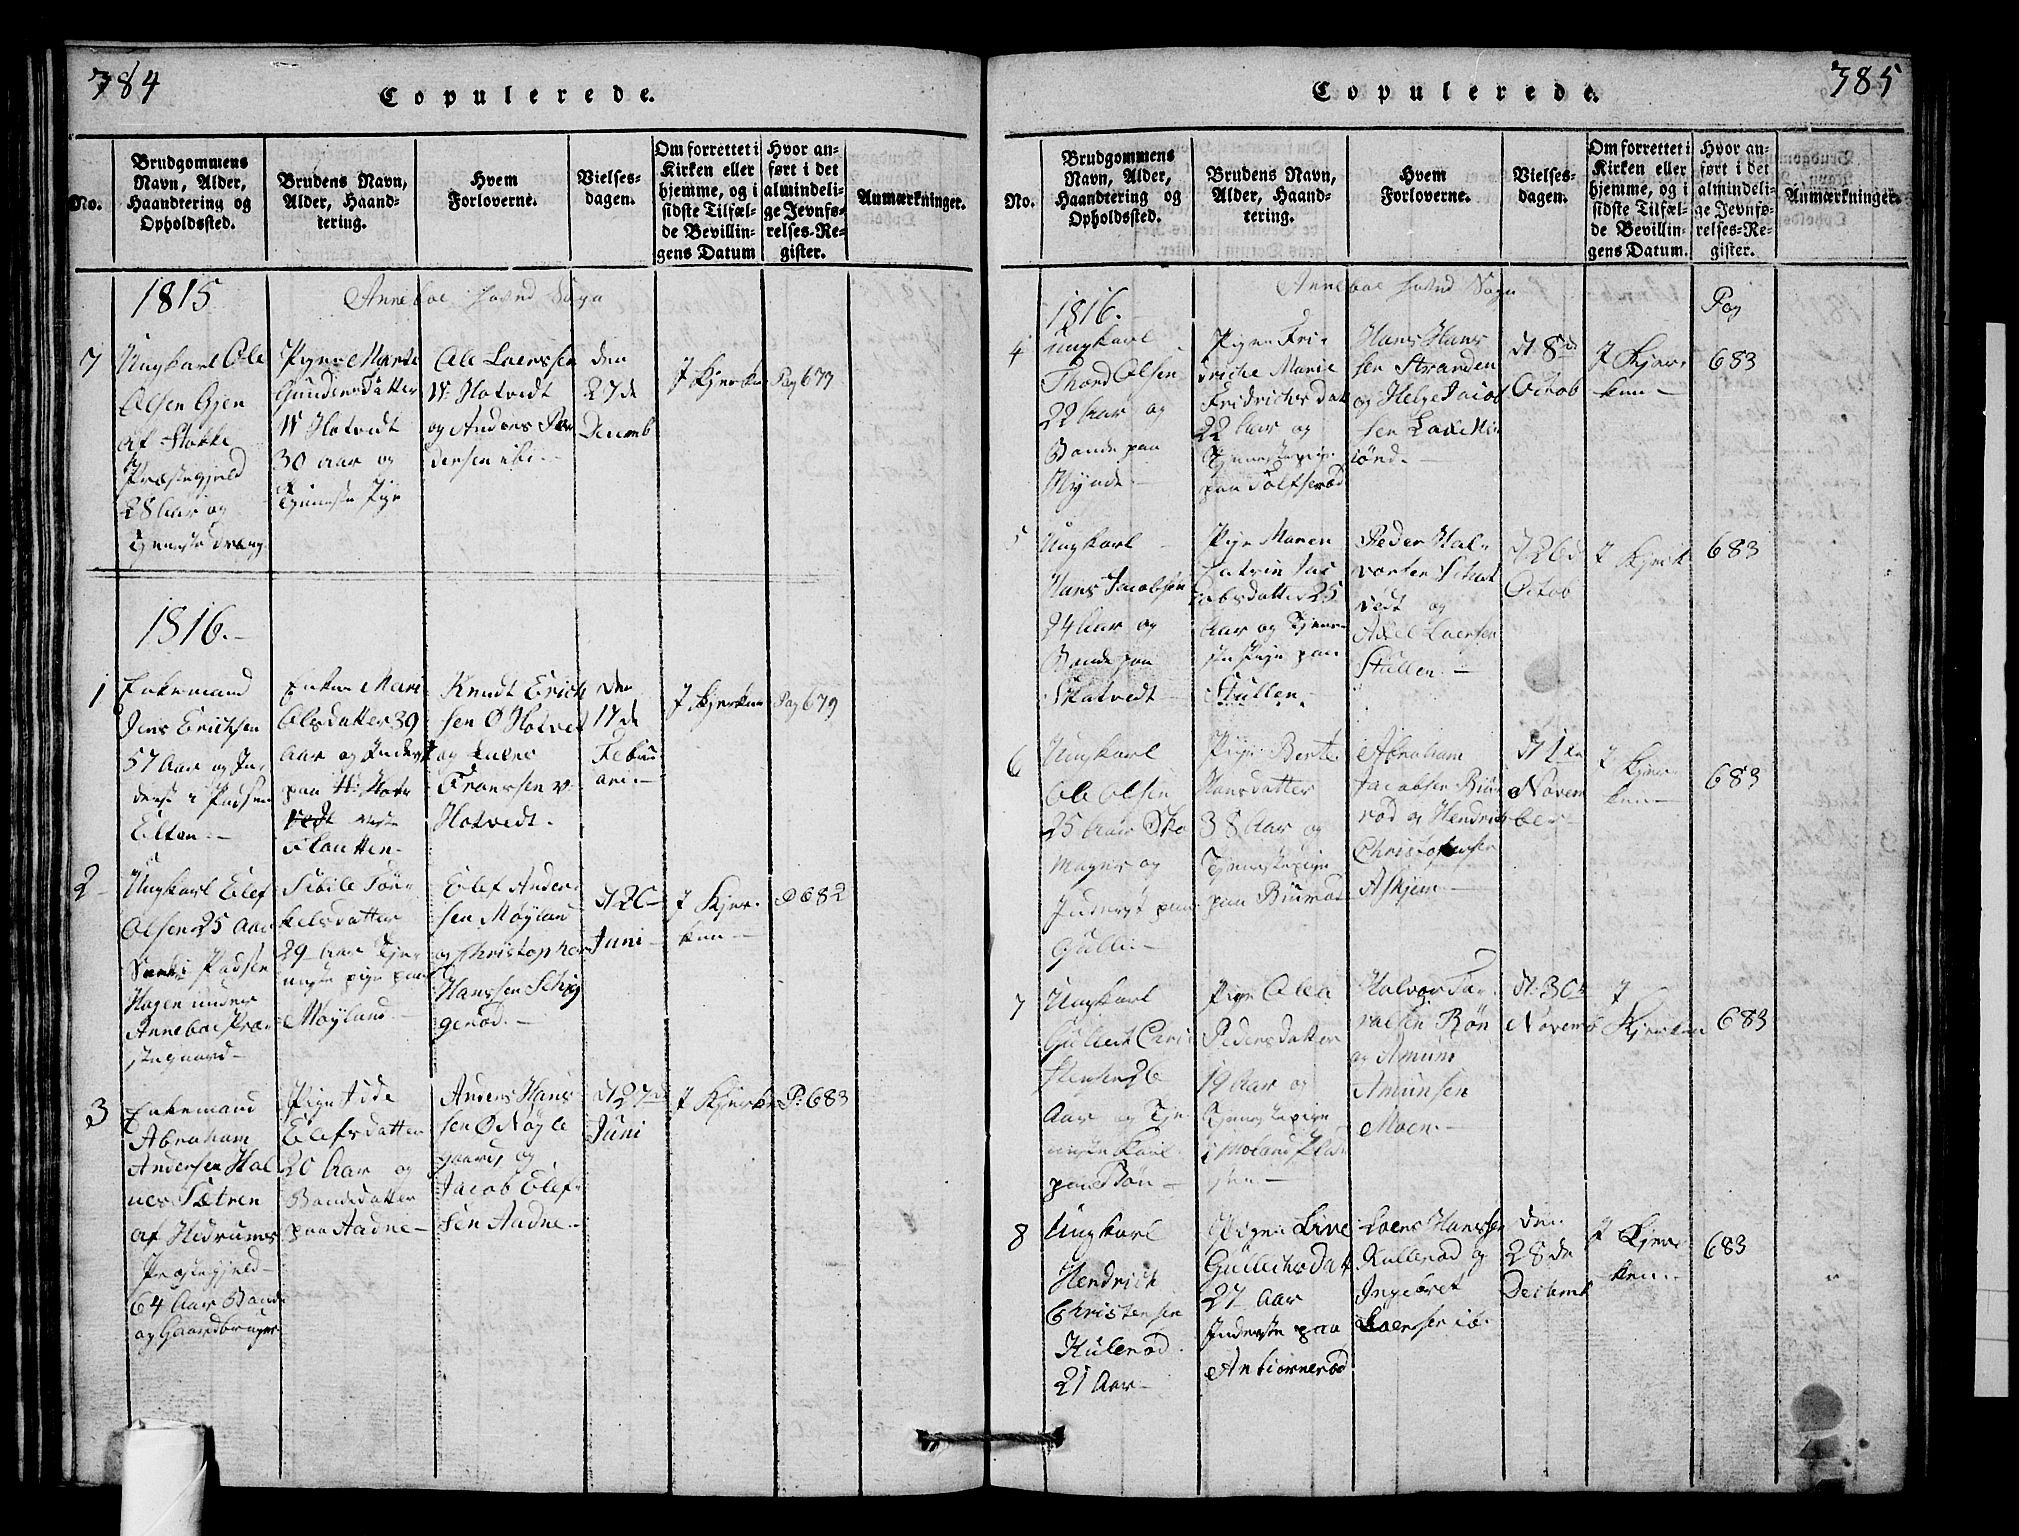 784
Copulerede.
No.
Brudgommens
Navn, Alder,
Haandtering og
Opholdssted.
Brudens Navn,
Alder, Haand-
tering.
Hvem
Forloverne.
Vielses-
dagen.
Om forrettet i
Kirken eller
hjemme, og i
sidste Tilfæl-
de Bevillin-
gens Datum
Hvor an-
ført i det
almindeli-
ge Jevnfø-
relses-Re-
gister.
Anmærkninger.
1815
Anneboe Sogn
7
Ungkarl Ole
Olsen Gjen
af Stokke
Præstegjeld
28 Aar og
Tjeneste Dreng
Pigen Marte
Gundersdatter
N Hotvedt
30 Aar og
Tjeneste Pige
Ole Laerssen
N: Hotvedt
og Anders Pe
dersen ibi.
den
27de
Decemb
I Kjerken
Pag 677
1816.
1
Enkemand
Jens Erichsen
57 Aar og In-
derst i
Enken Mari
Olsdatter 39
Aar og Inderst
paa
Knudt Erich
sen Ø Hotvet
og
Franssen v
Hotvedt.
den
17de
Febru
ari.
I Kjerken
Pag 679
2
Ungkarl Elef
Olsen 25 Aar
Hagen under
Anneboe Præ-
stegaard
Sibile Tor-
kelsdatter
29 Aar Tje-
neste pige paa
Møyland.
Elef Ander-
sen Møyland
og Christopher
Hanssen
gerød.
d 20
Juni
I Kjer-
ken
P 682
3
Enkemand
Abraham
Andersen Hol
nes Sætren
af Hedrums
Præstegjeld
64 Aar Bonde
og Gaardbruger
Pige
Elefsdatter
20 Aar og
Bondedatter
paa Aadne
Anders Hans
sen Ø Nøgle
gaard og
Jacob Elef-
sen Aadne.
d 27de
Juni
I Kjerken
P: 683
385
Copulerede.
No.
Brudgommens
Navn, Alder,
Haandtering og
Opholdssted.
Brudens Navn,
Alder, Haand-
tering.
Hvem
Forloverne.
Vielses-
dagen.
Om forrettet i
Kirken eller
hjemme, og i
sidste Tilfæl-
de Bevillin-
gens Datum.
Hvor an-
ført i det
almindeli-
ge Jevnfø-
relses-Re-
gister.
Anmærkninger.
Anneboe Sogn
1816.
Pag
4
Ungkarl
Thord Olsen
22 Aar og
Bonde paa
Hynde.
Pigen Fri-
driche Marie
Fridrichsdat
22 Aar og
Tjenestepige
paa Tolfserød
Hans Hans
sen Stranden
og Helge Jacob
sen
d 8de
Octob
I Kjer-
ken
683
5
Ungkarl
Hans Jacobsen
Aar og
Bonde paa
Skatvedt
Pige Maren
Catrin Jac
obsdatter 25
Aar og Tjene-
ste Pige paa
Stullen.
Peder Hal-
vorsen Skat
vedt og
Axel Laersen
Stullen.
d 26de
Octob
I Kjerk
683
6
Ungkarl
Ole Olsen
25 Aar Sko
mager og
Inderst paa
Gulli.
Pige Berte
Hansdatter
38 Aar og
Tjenestepige
paa Biunrød
Abraham
Jacobsen Biun
rød og Hendrich
Christophersen
Askjem
d 1ste
Novem
ber
I Kjer-
ken
683
7
Ungkarl
Gulleck Chri
stensen 26
Aar og Tje-
neste Karl
paa Bøn
Pige Olea
Pedersdatter
19 Aar og
Tjenestepige
i Moland
Halvor
Røn
og Amun
Amunsen
Moen.
d: 30te
Novemb
I
Kjerken
683
8
Ungkarl
Hendrich
Christensen
Kulerød.
21 Aar
Pigen Live
Gullichsdat
27 Aar
Inderste paa
Anbiørnerød
Laers Hanssen
Kullerød og
Ingebret
Laersen ib.
den
28de
Decemb
I Kjer-
ken.
683